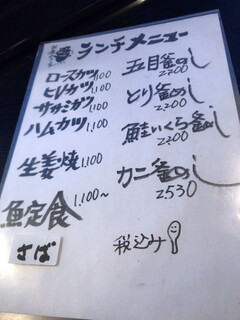 ランチメニュー
ロースカツ 1,100
ヒレカツ 1,100
ササミカツ 1,100
ハムカツ 1,100
生姜焼 1,100
魚定食 1,100～
さば
五目釜めし 2,200
とり釜めし 2,200
鮭いくら釜めし 2,200
カニ釜めし 2,530
税込み